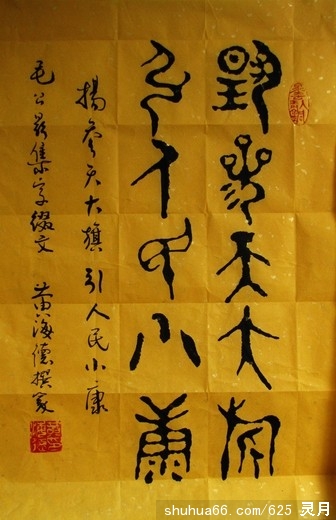 揚參天大旗
引人民小康
揚參天大旗 引人民小康
毛公鼎集字綴文 海德撰篆
shuhua66.com/625 灵月